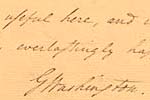 useful here, and
everlastingly
GWashington.